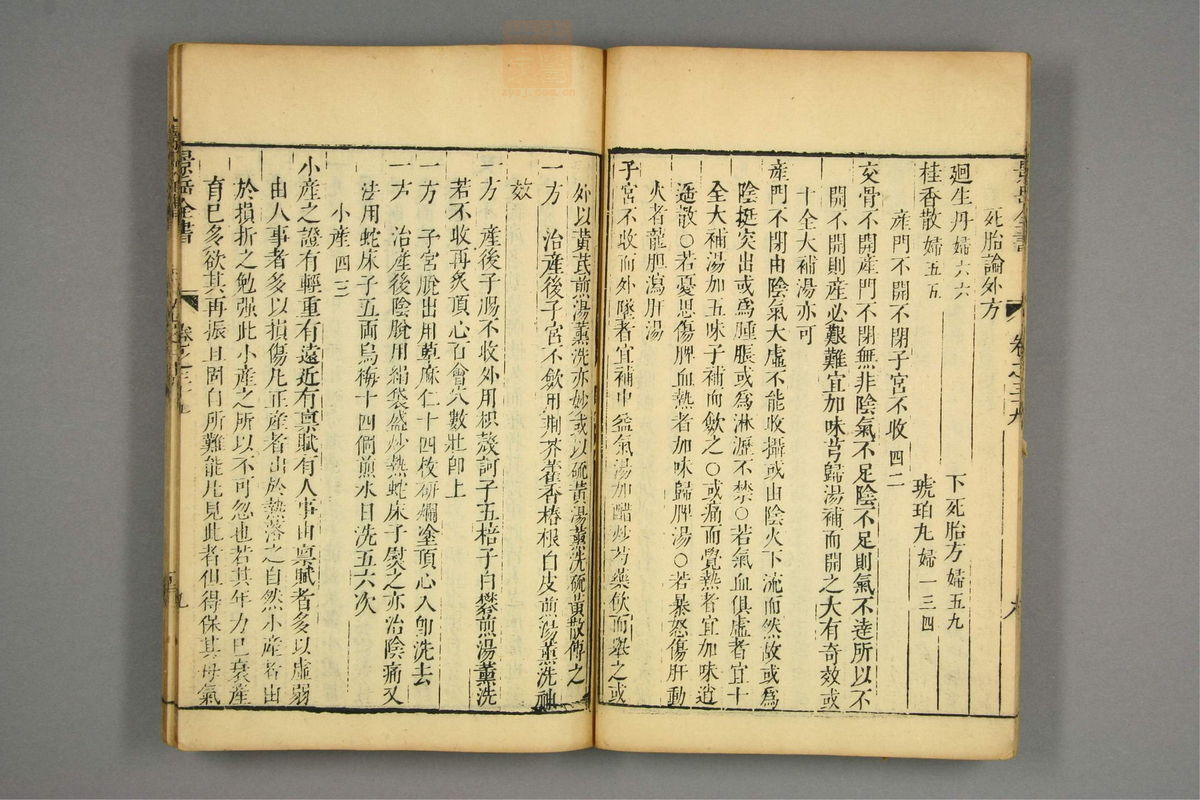 死胎論外方
廻生丹婦六六
下死胎方婦五九
桂香散婦五五
琥珀丸婦一三四
産門不開不閉子宮不收四二
交骨不開産門不閉無非陰氣不足陰不足則氣不達所以不
開不開則産必艱難宜加味芎歸湯補而開之大有奇效或
十全大補湯亦可
産門不閉由陰氣大虛不能收攝或由陰火下流而然故或爲
陰挺突出或爲腫脹或爲淋瀝不禁○若氣血俱虛者宜十
全大補湯加五味子補而斂之○或痛而覺熱者宜加味逍
遥散○若憂思傷脾血熱者加味歸脾湯○若暴怒傷肝動
火者龍胆瀉肝湯
子宮不收而外墜者宜補中益氣湯加醋炒芍藥飲而舉之或
卷之三十九
八
外以黃芪煎湯薰洗亦妙或以硫黃湯薰洗硫黃散傅之
一方 治産後子宮不斂用荆芥藿香椿根白皮煎湯薰洗神
效
一方 産後子腸不收外用枳殼訶子五棓子白礬煎湯薰洗
若不收再炙頂心百會穴數壯卽上
一方 子宮脫出用蓖麻仁十四枚研爛塗頂心入卽洗去
一方 治産後陰脫用絹袋盛炒熱蛇床子熨之亦治陰痛又
法用蛇床子五兩烏梅十四個煎水日洗五六次
小産四三
小産之證有輕重有遠近有禀賦有人事由禀賦者多以虛弱
由人事者多以損傷凡正産者出於熟落之自然小産者由
於損折之勉强此小産之所以不可忽也若其年力已衰産
育已多欲其再振且固自所難能凡見此者但得保其母氣
景岳全書
卷之三十九
九